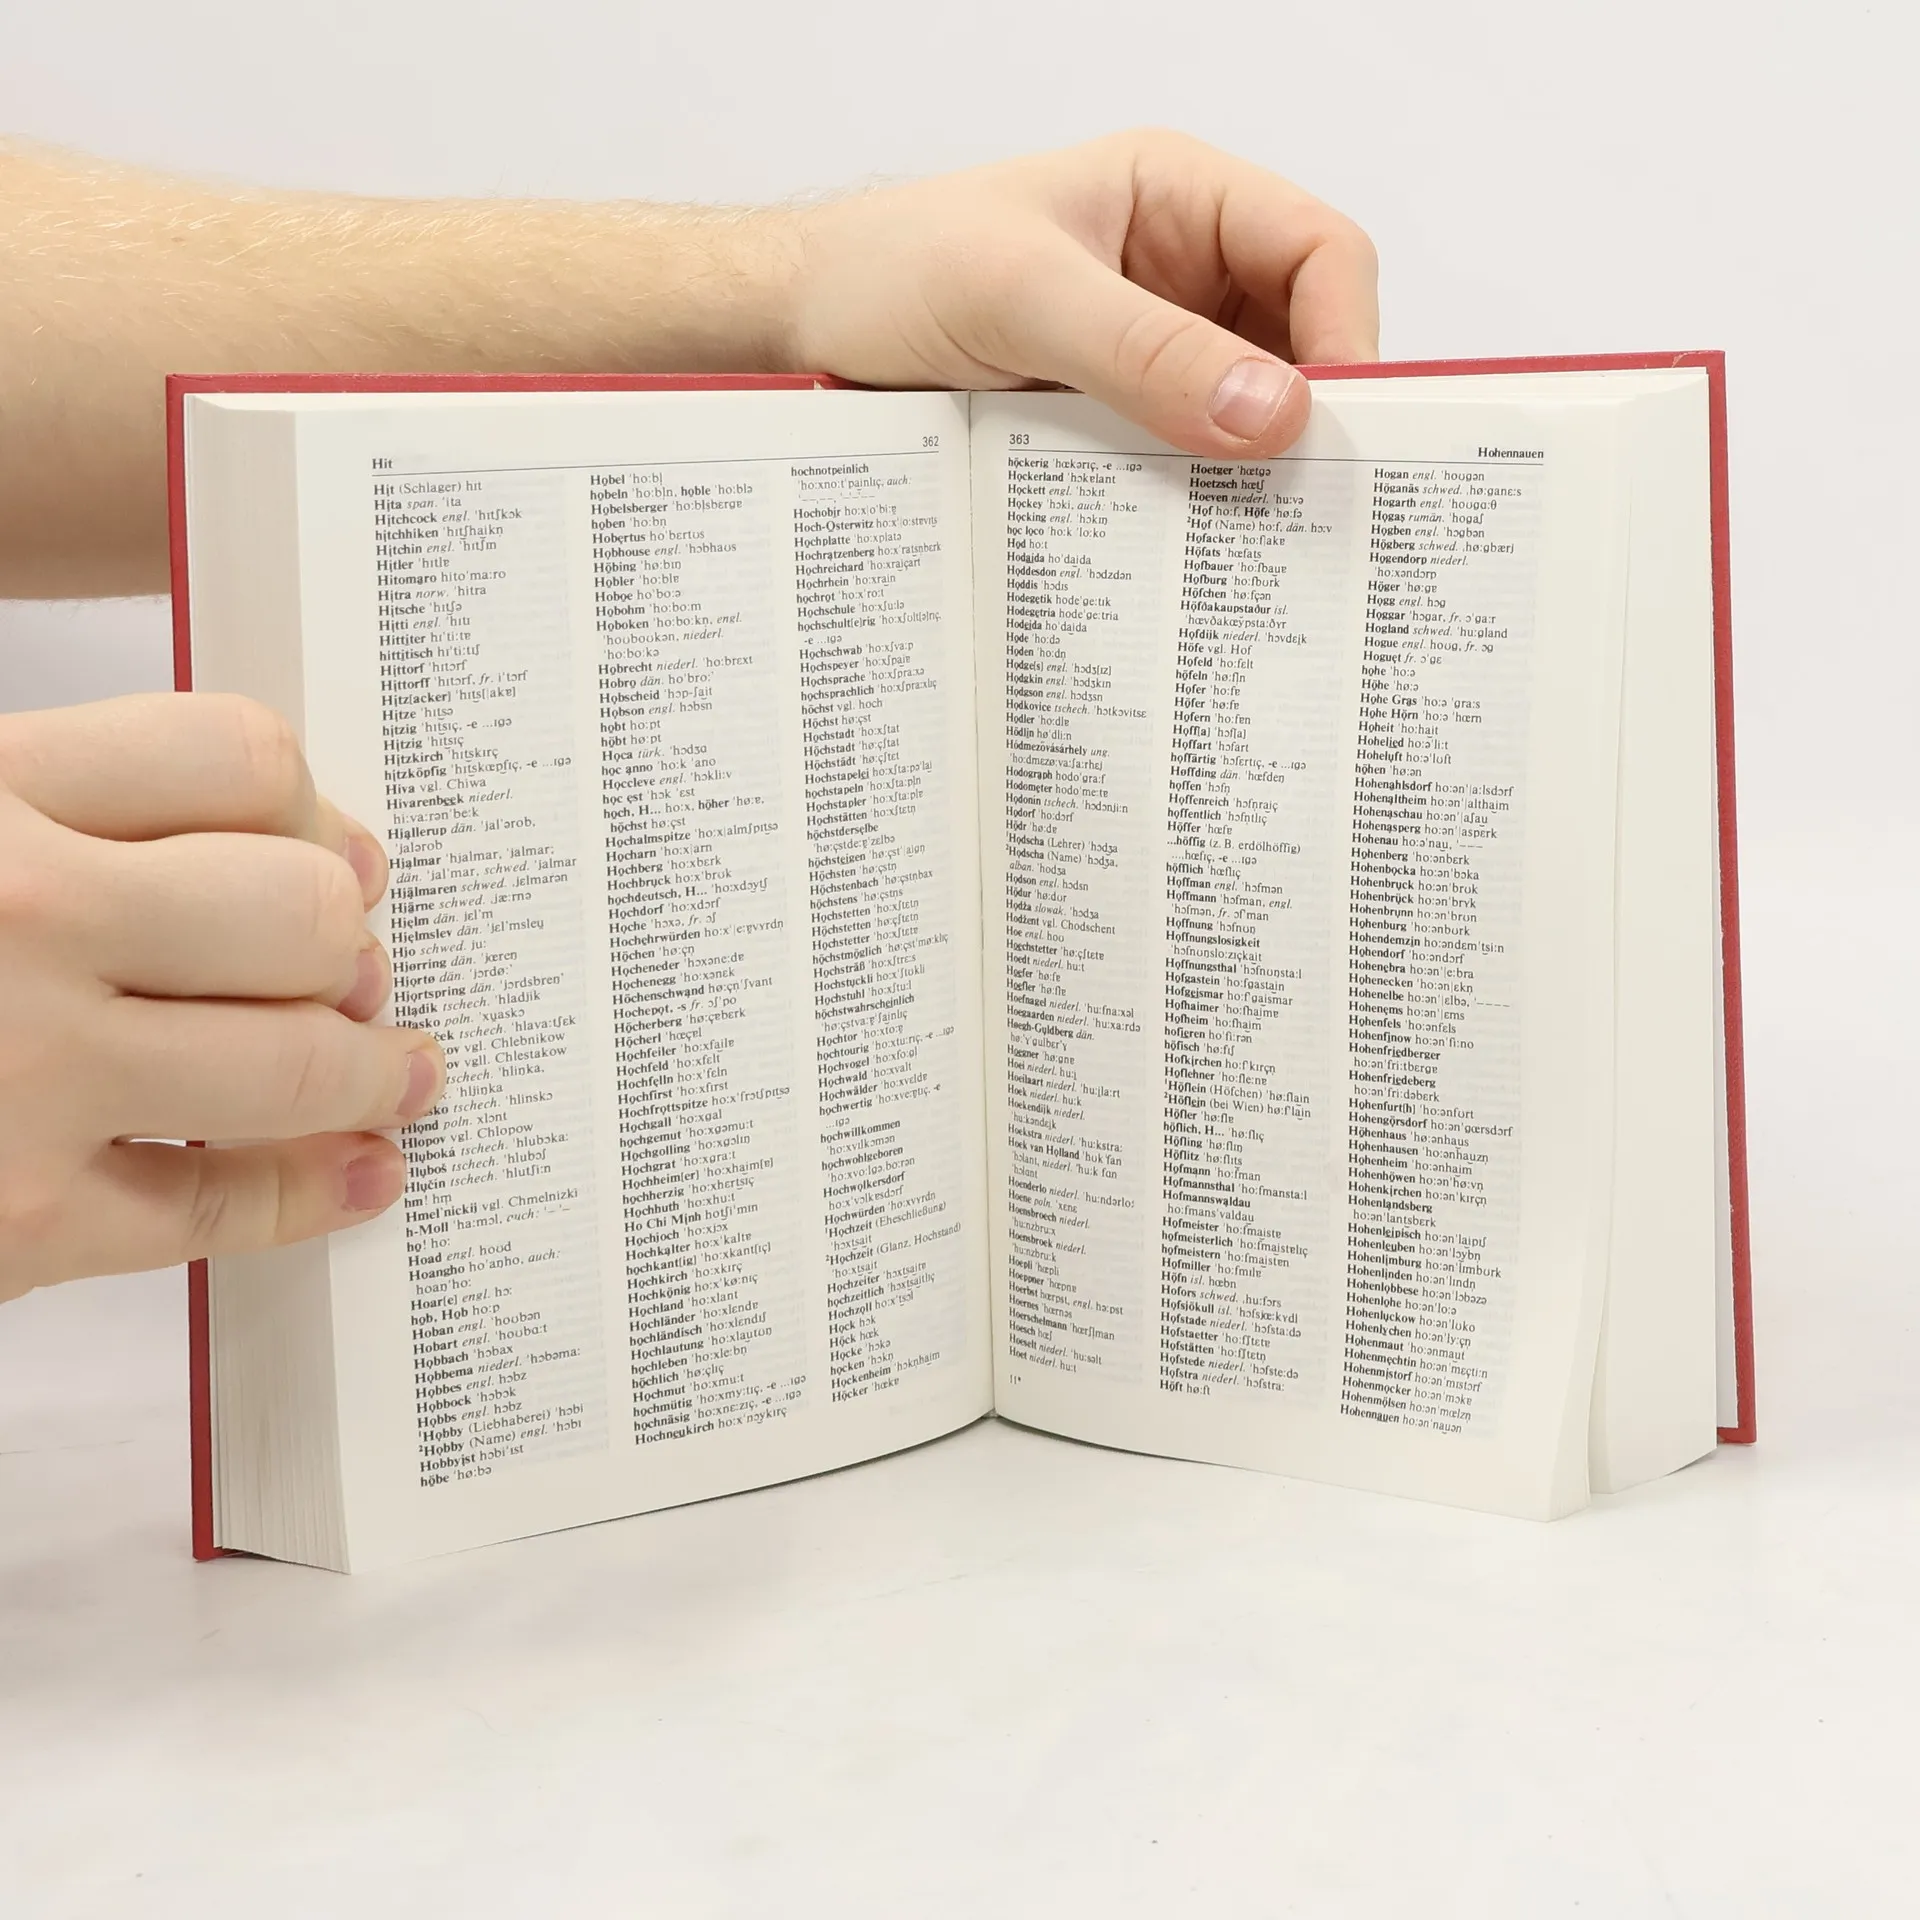 362
Hit
Hit (Schlager) hɪt
Hita span. 'ita
Hitchcock engl. 'hɪtʃkɔk
hitchhiken 'hɪtʃhaikn̩
Hitchin engl. 'hɪtʃɪn
Hitler 'hɪtlɐ
Hitomaro hito'ma:ro
Hitra norw. 'hitra
Hitsche 'hɪtʃə
Hitti engl. 'hɪtɪ
Hittiter hɪ'ti:tɐ
hittitisch hɪ'ti:tɪʃ
Hittorf 'hɪtɔrf
Hittorff 'hɪtɔrf, fr. i'tɔrf
Hitz[acker] 'hɪts[|akɐ]
Hitze 'hɪtsə
hitzig 'hɪtsɪç, -e ...ɪgə
Hitzig 'hɪtsɪç
Hitzkirch 'hɪtskɪrç
hitzköpfig 'hɪtskœpfɪç, -e ...ɪgə
Hiva vgl. Chiwa
Hivarenbeek niederl.
hi:va:rən'be:k
Hjallerup dän. 'jal'ərob,
'jalərob
Hjalmar 'hjalmar, 'jalmar;
dän. 'jal'mar, schwed. 'jalmar
Hjälmaren schwed. ˌjɛlmarən
Hjärne schwed. ˌjæ:rnə
Hjelm dän. jɛl'm
Hjelmslev dän. 'jɛl'msleu
Hjo schwed. ju:
Hjørring dän. 'jœren
Hjortø dän. 'jɔrdø:'
Hjortspring dän. 'jɔrdsbren'
Hladik tschech. 'hladjik
Hłasko poln. 'xu̯askɔ
tschech. 'hlava:tʃɛk
vgl. Chlebnikow
vgll. Chlestakow
tschech. 'hlinka,
'hljinka
tschech. 'hlinskɔ
Hlond poln. xlɔnt
Hlopov vgl. Chlopow
Hluboká tschech. 'hlubɔka:
Hluboš tschech. 'hlubɔʃ
Hlučín tschech. 'hlutʃi:n
hm! hm
Hmel'nickij vgl. Chmelnizki
h-Moll 'ha:mɔl, auch: '–'–
ho! ho:
Hoad engl. hoʊd
Hoangho ho'aŋho, auch:
hoaŋ'ho:
Hoar[e] engl. hɔ:
hob, Hob ho:p
Hoban engl. 'hoʊbən
Hobart engl. 'hoʊbɑ:t
Hobbach 'hɔbax
Hobbema niederl. 'hɔbəma:
Hobbes engl. hɔbz
Hobbock 'hɔbɔk
Hobbs engl. hɔbz
¹Hobby (Liebhaberei) 'hɔbi
²Hobby (Name) engl. 'hɔbɪ
Hobbyist hɔbi'ɪst
höbe 'hø:bə
Hobel 'ho:bl̩
hobeln 'ho:bl̩n, hoble 'ho:blə
Hobelsberger 'ho:bl̩sbɛrgɐ
hoben 'ho:bn̩
Hobertus ho'bɛrtʊs
Hobhouse engl. 'hɔbhaʊs
Höbing 'hø:bɪŋ
Hobler 'ho:blɐ
Hoboe ho'bo:ə
Hobohm 'ho:bo:m
Hoboken 'ho:bo:kn̩, engl.
'hoʊboʊkən, niederl.
'ho:bo:kə
Hobrecht niederl. 'ho:brɛxt
Hobro dän. ho'bro:'
Hobscheid 'ho:p-ʃait
Hobson engl. hɔbsn
hobt ho:pt
höbt hø:pt
Hoca türk. 'hɔdʒɑ
hoc anno 'ho:k 'ano
Hoccleve engl. 'hɔkli:v
hoc est 'hɔk 'ɛst
hoch, H... ho:x, höher 'hø:ɐ,
höchst hø:çst
Hochalmspitze 'ho:x|almʃpɪtsə
Hocharn 'ho:x|arn
Hochberg 'ho:xbɛrk
Hochbruck 'ho:xbrʊk
hochdeutsch, H... 'ho:xdɔytʃ
Hochdorf 'ho:xdɔrf
Hoche 'hɔxə, fr. ɔʃ
Hochehrwürden ho:x'|e:ɐ̯vʏrdn̩
Höchen 'hø:çn̩
Hocheneder 'hɔxəne:dɐ
Hochenegg 'ho:xənɛk
Höchenschwand hø:çn̩'ʃvant
Hochepot, -s fr. ɔʃ'po
Höcherberg 'hø:çɐbɛrk
Höcherl 'hœçɐl
Hochfeiler 'ho:xfailɐ
Hochfeld 'ho:xfɛlt
Hochfelln ho:x'fɛln
Hochfirst 'ho:xfɪrst
Hochfrottspitze ho:x'frɔtʃpɪtsə
Hochgall 'ho:xgal
hochgemut 'ho:xgəmu:t
Hochgolling 'ho:xgɔlɪŋ
Hochgrat 'ho:xgra:t
Hochheim[er] 'ho:xhaim[ɐ]
hochherzig 'ho:xhɛrtsɪç
Hochhuth 'ho:xhu:t
Ho Chi Minh hotʃi'mɪn
Hochjoch 'ho:xjɔx
Hochkalter ho:x'kaltɐ
hochkant[ig] 'ho:xkant[ɪç]
Hochkirch 'ho:xkɪrç
Hochkönig 'ho:x'kø:nɪç
Hochland 'ho:xlant
Hochländer 'ho:xlɛndɐ
hochländisch 'ho:xlɛndɪʃ
Hochlautung 'ho:xlautʊŋ
hochleben 'ho:xle:bn̩
höchlich 'hø:çlɪç
Hochmut 'ho:xmu:t
hochmütig 'ho:xmy:tɪç, -e ...ɪgə
hochnäsig 'ho:xnɛ:zɪç, -e ...ɪgə
Hochneukirch ho:x'nɔykɪrç
hochnotpeinlich
'ho:xno:t'painlɪç, auch:
Hochobir ho:x'|o:bi:ɐ̯
Hoch-Osterwitz ho:x'|o:stɐvɪts
Hochplatte 'ho:xplatə
Hochratzenberg ho:x'ratsn̩bɛrk
Hochreichard 'ho:xraiçart
Hochrhein 'ho:xrain
hochrot 'ho:x'ro:t
Hochschule 'ho:xʃu:lə
hochschult[e]rig 'ho:xʃʊlt[ə]rɪç,
-e ...ɪgə
Hochschwab 'ho:xʃva:p
Hochspeyer 'ho:xʃpaiɐ
Hochsprache 'ho:xʃpra:xə
hochsprachlich 'ho:xʃpra:xlɪç
höchst vgl. hoch
Höchst hø:çst
Hochstadt 'ho:xʃtat
Höchstadt 'hø:çʃtat
Höchstädt 'hø:çʃtɛt
Hochstapelei ho:xʃta:pə'lai
hochstapeln 'ho:xʃta:pl̩n
Hochstapler 'ho:xʃta:plɐ
Hochstätten 'ho:xʃtɛtn̩
höchstderselbe
'hø:çstde:ɐ̯'zɛlbə
höchsteigen 'hø:çst'|aign̩
Höchsten 'hø:çstn̩
Höchstenbach 'hø:çstn̩bax
höchstens 'hø:çstn̩s
Hochstetten 'ho:xʃtɛtn̩
Höchstetten 'hø:çʃtɛtn̩
Hochstetter 'ho:xʃtɛtɐ
höchstmöglich 'hø:çst'mø:klɪç
Hochsträß 'ho:xʃtrɛ:s
Hochstuckli 'ho:x'ʃtʊkli
Hochstuhl 'ho:xʃtu:l
höchstwahrscheinlich
'hø:çstva:ɐ̯'ʃainlɪç
Hochtor 'ho:xto:ɐ̯
hochtourig 'ho:xtu:rɪç, -e ...ɪgə
Hochvogel 'ho:xfo:gl̩
Hochwald 'ho:xvalt
Hochwälder 'ho:xvɛldɐ
hochwertig 'ho:xve:ɐ̯tɪç, -e
...ɪgə
hochwillkommen
'ho:xvɪlkɔmən
hochwohlgeboren
'ho:xvo:lgəˌbo:rən
Hochwolkersdorf
ho:x'vɔlkɐsdɔrf
Hochwürden 'ho:xvʏrdn̩
¹Hochzeit (Eheschließung)
'hɔxtsait
²Hochzeit (Glanz, Hochstand)
'ho:xtsait
Hochzeiter 'hɔxtsaitɐ
hochzeitlich 'hɔxtsaitlɪç
Hochzoll ho:x'tsɔl
Hock hɔk
Höck hœk
Hocke 'hɔkə
hocken 'hɔkn̩
Hockenheim 'hɔkn̩haim
Höcker 'hœkɐ
363
Hohennauen
höckerig 'hœkərɪç, -e ...ɪgə
Hockerland 'hɔkɐlant
Hockett engl. 'hɔkɪt
Hockey 'hɔki, auch: 'hɔke
Hocking engl. 'hɔkɪŋ
hoc loco 'ho:k 'lo:ko
Hod ho:t
Hodaida ho'daida
Hoddesdon engl. 'hɔdzdən
Hoddis 'hɔdɪs
Hodegetik hode'ge:tɪk
Hodegetria hode'ge:tria
Hodeida ho'daida
Hode 'ho:də
Hoden 'ho:dn̩
Hodge[s] engl. 'hɔdʒ[ɪz]
Hodgkin engl. 'hɔdʒkɪn
Hodgson engl. hɔdʒsn
Hodkovice tschech. 'hɔtkɔvitsɛ
Hodler 'ho:dlɐ
Hödlin hø'dli:n
Hódmezővásárhely ung.
'ho:dmɛzø:va:ʃa:rhɛj
Hodograph hodo'gra:f
Hodometer hodo'me:tɐ
Hodonín tschech. 'hɔdɔnji:n
Hodorf 'ho:dɔrf
Hödr 'hø:dɐ
¹Hodscha (Lehrer) 'hɔdʒa
²Hodscha (Name) 'hɔdʒa,
alban. 'hodʒa
Hodson engl. hɔdsn
Hödur 'hø:dʊr
Hodža slowak. 'hɔdʒa
Hodžent vgl. Chodschent
Hoe engl. hoʊ
Hoechstetter 'hø:çʃtɛtɐ
Hoedt niederl. hu:t
Hoefer 'hø:fɐ
Hoefler 'hø:flɐ
Hoefnagel niederl. 'hu:fna:xəl
Hoegaarden niederl. 'hu:xa:rdə
Hoegh-Guldberg dän.
hø:'ɣ'gulbɛr'ɣ
Hoegner 'hø:gnɐ
Hoei niederl. hu:i
Hoeilaart niederl. 'hu:jla:rt
Hoek niederl. hu:k
Hoekendijk niederl.
'hu:kəndɛjk
Hoekstra niederl. 'hu:kstra:
Hoek van Holland 'huk fan
'hɔlant, niederl. 'hu:k fɑn
'hɔlɑnt
Hoenderlo niederl. 'hu:ndərlo:
Hoene poln. 'xɛnɛ
Hoensbroech niederl.
'hu:nzbru:x
Hoensbroek niederl.
'hu:nzbru:k
Hoepli 'hœpli
Hoeppner 'hœpnɐ
Hoerbst hœrpst, engl. hə:pst
Hoernes 'hœrnəs
Hoerschelmann 'hœrʃl̩man
Hoesch hœʃ
Hoeselt niederl. 'hu:səlt
Hoet niederl. hu:t
11*
Hoetger 'hœtgɐ
Hoetzsch hœtʃ
Hoeven niederl. 'hu:və
¹Hof ho:f, Höfe 'hø:fə
²Hof (Name) ho:f, dän. hɔ:v
Hofacker 'ho:f|akɐ
Höfats 'hœfats
Hofbauer 'ho:fbauɐ
Hofburg 'ho:fbʊrk
Höfchen 'hø:fçən
Höfðakaupstaður isl.
'hœvðakœỹpsta:ðʏr
Hofdijk niederl. 'hɔvdɛjk
Höfe vgl. Hof
Hofeld 'ho:fɛlt
höfeln 'hø:fl̩n
Hofer 'ho:fɐ
Höfer 'hø:fɐ
Hofern 'ho:fɐn
Hoff[a] 'hɔf[a]
Hoffart 'hɔfart
hoffärtig 'hɔfɛrtɪç, -e ...ɪgə
Høffding dän. 'hœfden
hoffen 'hɔfn̩
Hoffenreich 'hɔfn̩raiç
hoffentlich 'hɔfn̩tlɪç
Höffer 'hœfɐ
...höffig (z. B. erdölhöffig)
...ˌhœfɪç, -e ...ɪgə
höfflich 'hœflɪç
Hoffman engl. 'hɔfmən
Hoffmann 'hɔfman, engl.
'hɔfmən, fr. ɔf'man
Hoffnung 'hɔfnʊŋ
Hoffnungslosigkeit
'hɔfnʊŋslo:zɪçkait
Hoffnungsthal 'hɔfnʊŋsta:l
Hofgastein 'ho:fgastain
Hofgeismar ho:f'gaismar
Hofhaimer 'ho:fhaimɐ
Hofheim 'ho:fhaim
hofieren ho'fi:rən
höfisch 'hø:fɪʃ
Hofkirchen ho:f'kɪrçn̩
Hoflehner 'ho:fle:nɐ
¹Höflein (Höfchen) 'hø:flain
²Höflein (bei Wien) hø:f'lain
Höfler 'hø:flɐ
höflich, H... 'hø:flɪç
Höfling 'hø:flɪŋ
Höflitz 'hø:flɪts
Hofmann 'ho:fman
Hofmannsthal 'ho:fmansta:l
Hofmannswaldau
ho:fmans'valdau
Hofmeister 'ho:fmaistɐ
hofmeisterlich 'ho:fmaistɐlɪç
hofmeistern 'ho:fmaistɐn
Hofmiller 'ho:fmɪlɐ
Höfn isl. hœbn
Hofors schwed. ˌhu:fɔrs
Hofsjökull isl. 'hɔfsjœ:kʏdl
Hofstade niederl. 'hɔfsta:də
Hofstaetter 'ho:fʃtɛtɐ
Hofstätten 'ho:fʃtɛtn̩
Hofstede niederl. 'hɔfste:də
Hofstra niederl. 'hɔfstra:
Höft hø:ft
Hogan engl. 'hoʊgən
Höganäs schwed. ˌhø:ganɛ:s
Hogarth engl. 'hoʊgɑ:θ
Hogaș rumän. 'hogaʃ
Hogben engl. 'hɔgbən
Högberg schwed. ˌhø:gbærj
Hogendorp niederl.
'ho:xəndɔrp
Höger 'hø:gɐ
Hogg engl. hɔg
Hoggar 'hɔgar, fr. ɔ'ga:r
Hogland schwed. 'hu:gland
Hogue engl. hoʊg, fr. ɔg
Hoguet fr. ɔ'gɛ
hohe 'ho:ə
Höhe 'hø:ə
Hohe Gras 'ho:ə 'gra:s
Hohe Hörn 'ho:ə 'hœrn
Hoheit 'ho:hait
Hohelied ho:ə'li:t
Hoheluft ho:ə'lʊft
höhen 'hø:ən
Hohenahlsdorf ho:ən'|a:lsdɔrf
Hohenaltheim ho:ən'|althaim
Hohenaschau ho:ən'|aʃau
Hohenasperg ho:ən'|aspɛrk
Hohenau ho:ə'nau, '–––
Hohenberg 'ho:ənbɛrk
Hohenbocka ho:ən'bɔka
Hohenbruck ho:ən'brʊk
Hohenbrück ho:ən'brʏk
Hohenbrunn ho:ən'brʊn
Hohenburg 'ho:ənbʊrk
Hohendemzin ho:əndɛm'tsi:n
Hohendorf 'ho:əndɔrf
Hohenebra ho:ən'|e:bra
Hohenecken ho:ən'|ɛkn̩
Hohenelbe ho:ən'|ɛlbə, '––––
Hohenems ho:ən'|ɛms
Hohenfels 'ho:ənfɛls
Hohenfinow ho:ən'fi:no
Hohenfriedberger
ho:ən'fri:tbɛrgɐ
Hohenfriedeberg
ho:ən'fri:dəbɛrk
Hohenfurt[h] 'ho:ənfʊrt
Hohengörsdorf ho:ən'gœrsdɔrf
Höhenhaus 'hø:ənhaus
Hohenhausen 'ho:ənhauzn̩
Hohenheim 'ho:ənhaim
Hohenhöwen ho:ən'hø:vn̩
Hohenkirchen ho:ən'kɪrçn̩
Hohenlandsberg
ho:ən'lantsbɛrk
Hohenleipisch ho:ən'laipɪʃ
Hohenleuben ho:ən'lɔybn̩
Hohenlimburg ho:ən'lɪmbʊrk
Hohenlinden ho:ən'lɪndn̩
Hohenlobbese ho:ən'lɔbəzə
Hohenlohe ho:ən'lo:ə
Hohenluckow ho:ən'lʊko
Hohenlychen ho:ən'ly:çn̩
Hohenmaut ho:ən'maut
Hohenmechtin ho:ən'mɛçti:n
Hohenmistorf ho:ən'mɪstɔrf
Hohenmocker ho:ən'mɔkɐ
Hohenmölsen ho:ən'mœlzn̩
Hohennauen ho:ən'nauən